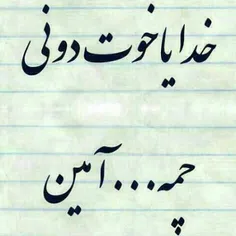 خدایا خوت دونی
چمه... آمین